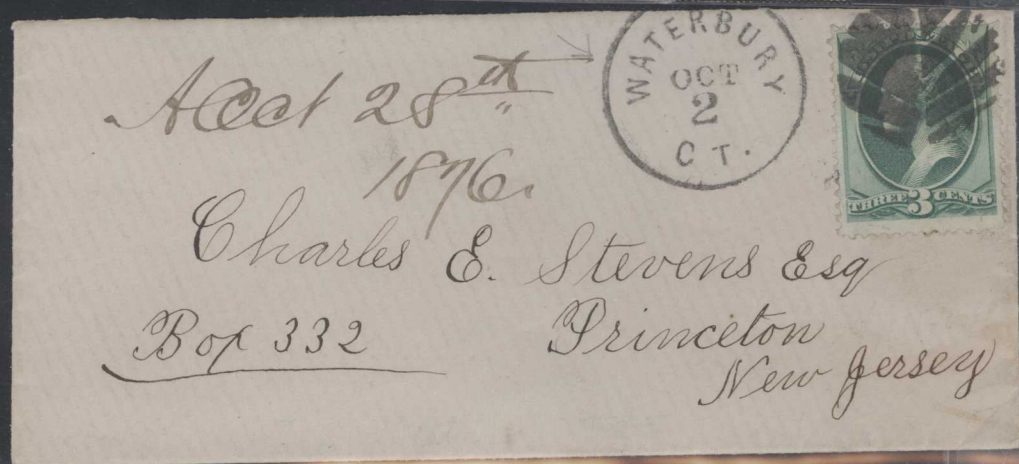 Oct 28th
1876.
WATERBURY
OCT
2
CT.
THREE 3 CENTS
Charles E. Stevens Esq
Box 332
Princeton
New Jersey